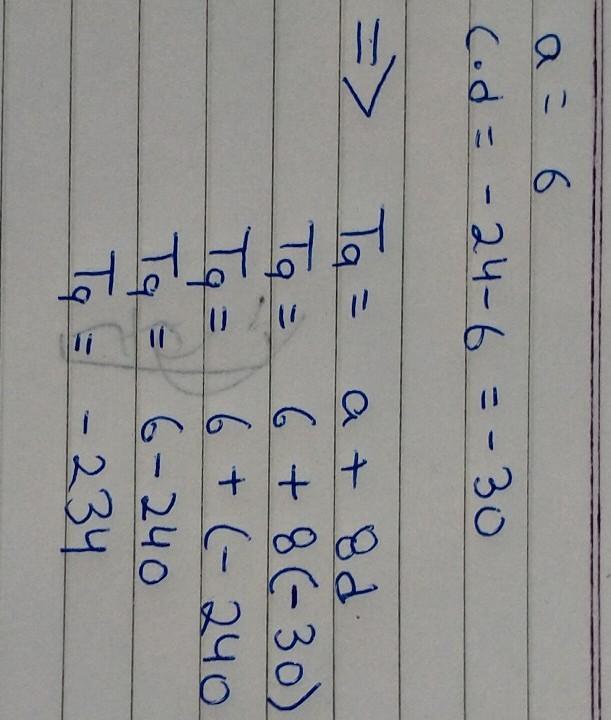 a = 6
C.d = -24-6 = -30
=> T9 = a + 8d
T9 = 6 + 8(-30)
T9 = 6 + (-240
T9 = 6-240
T9 = -234